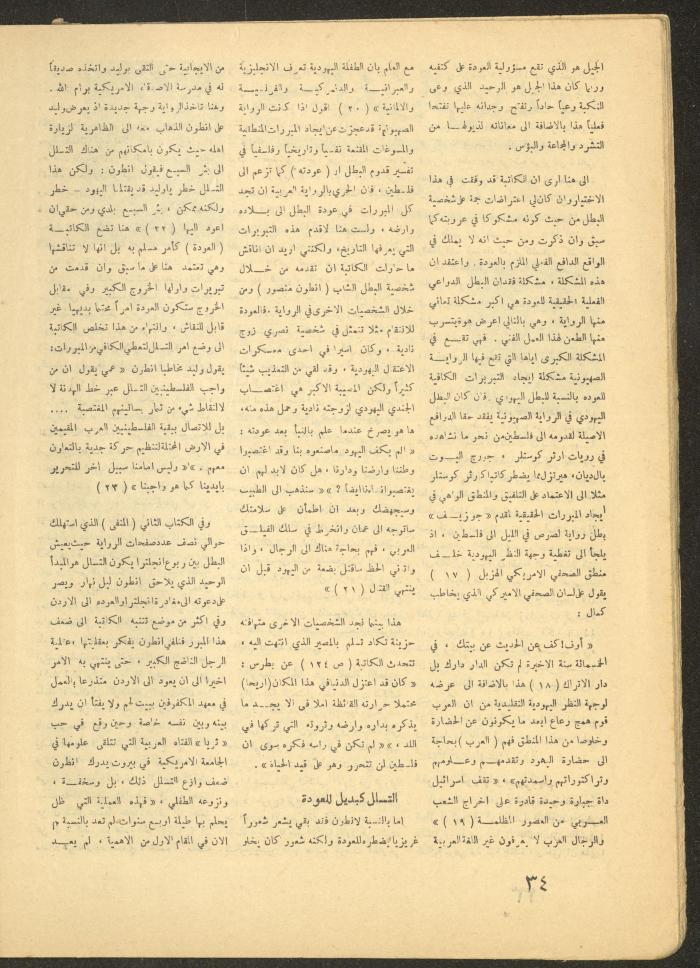 الجيل هو الذي تقع مسؤولية العودة على كتفيه
وربما كان هذا الجيل هو الوحيد الذي وعى
النكبة وعياً حاداً وتفتح وجدانه عليها تفتحا
فعلياً هذا بالاضافة الى معاناته لذيولها من
التشرد والمجاعة والبؤس .
الى هنا ارى ان الكاتبة قد وقفت في هذا
الاختيار وان كان لي اعتراضات جمة على شخصية
البطل من حيث كونه مشكوكا في عروبته كما
سبق وان ذكرت ومن حيث انه لا يملك في
الواقع الدافع الفعلي الملزم بالعودة . واعتقد ان
هذه المشكلة ، مشكلة فقدان البطل الدواعي
الفعلية الحقيقية للعودة هي اكبر مشكلة تعاني
منها الرواية ، وهي بالتالي اعرض هوة يتسرب
منها الطعن لهذا العمل الفني . فهي تقع في
المشكلة الكبرى اياها التي تقع فيها الرواية
الصهيونية مشكلة ايجاد التبريرات الكافية
للعوده بالنسبة للبطل اليهودي فان كان البطل
اليهودي في الرواية الصهيونية يفقد حقا الدوافع
الاصيلة لقدومه الى فلسطين من نحو ما نشاهده
في رويات ارثر كوستلر ، جورج اليوت
يال ديان، هيرتزل مما يضطر كاتبا كارثر كوستلر
مثلا الى الاعتماد على التلفيق والمنطق الواهي في
ايجاد المبررات الحقيقية لمقدم « جوزيف »
بطل رواية لصوص في الليل الى فلسطين ، اذ
يلجأ الى تغطية وجهة النظر اليهودية خلف
منطق الصحفي الامريكي الهزيل ( ١٧ )
يقول على لسان الصحفي الاميركي الذي يخاطب
كمال :
« أوف! كف عن الحديث عن بيتك ، في
الخمسمائة سنة الاخيرة لم تكن الدار دارك بل
دار الاتراك ( ١٨ ) هذا بالاضافة الى عرضه
لوجهة النظر اليهودية التقليدية من ان العرب
قوم همج رعاع ابعد ما يكونون عن الحضارة
وخلوصا من هذا المنطق فهم ( العرب ) بحاجة
الى حضارة اليهود وتقدمهم وعلومهم
وتراكتوراتهم واسمدتهم » ، « تقف اسرائيل
داة جبارة وحيدة قادرة على اخراج الشعب
العربي من العصور المظلمة ( ١٩ ) »
والرجال العرب لا يعرفون غير اللغة العربية
مع العلم بان الطفلة اليهودية تعرف الانجليزية
والعبرانية والدنمركية والفرنسية
والالمانية » ( ٢٠ ) اقول اذا كانت الرواية
الصهيونية قد عجزت عن ايجاد المبررات المنطقية
والمسوغات المقنعة نفسياً وتاريخياً وفلسفياً في
تفسير قدوم البطل او ( عودته ) كما تزعم الى
فلسطين ، فان الحري بالرواية العربية ان تجد
كل المبررات في عودة البطل الى بلاده
وارضه ، ولست هنا لاقدم هذه التبريرات
التي يعرفها التاريخ، ولكنني اريد ان اناقش
ما حاولت الكاتبة ان تقدمه من خلال
شخصية البطل الشاب ( انطون منصور ) ومن
خلال الشخصيات الاخرى في الرواية . فالعودة
للانتقام مثلا تتمثل في شخصية نصري زوج
نادية ، وكان اسيرا في احدى معسكرات
الاعتقال اليهودية . وقد لقي من التعذيب شيئاً
كثيراً ولكن المصيبة الاكبر هي اغتصاب
الجندي اليهودي لزوجته نادية وحمل هذه منه،
ها هو يصرخ عندما علم بالنبأ بعد عودته :
« الم يكف اليهود ماصنعوه بنا وقد اغتصبوا
وطننا وارضنا ودارنا ، هل كان لابد لهم ان
يغتصبوا نساءنا ايضاً ? » « سنذهب الى الطبيب
وسيجهضك وبعد ان اطمأن على سلامتك
ساتوجه الى عمان وانخرط في سلك الفيلق
العربي ، فهم بحاجة هناك الى الرجال ، واذا
واتاني الحظ ساقتل بضعة من اليهود قبل ان
ينتهي القتال ( ٢١ ) »
هذا بينما نجد الشخصيات الاخرى متهافتة
حزينة تكاد تسلم بالمصير الذي انتهت اليه ،
تتحدث الكاتبة ( ص ١٢٤ ) عن بطرس :
« كان قد اعتزل الدنيا في هذا المكان ( اريحا )
محتملا حرارته القائظة املا في الا يجد ما
يذكره بداره وارضه وثروته التي تركها في
اللد ، » « لم تكن في راسه فكره سوى ان
فلسطين لن تتحرر وهو على قيد الحياة » .
التسلل كبديل للعودة
اما بالنسبة لانطون فقد بقي يشعر شعوراً
غريزيا يضطره للعودة ولكنه شعور كان يخلو
من الايجابية حتى التقى بوليد واتخذه صديقاً
له في مدرسة الاصدقاء الامريكية برام الله .
وهنا تاخذ الرواية وجهة جديدة اذ يعرض وليد
على انطون الذهاب معه الى الظاهرية لزيارة
اهله حيث يكون بامكانهم من هناك التسلل
الى بئر السبع فيقول انطون : ولكن هذا
التسلل خطر يا وليد قد يقتلنا اليهود – خطر
ولكنه ممكن ، بئر السبع بلدي ومن حقي ان
اعود اليها ( ٢٢ ) » هنا تضع الكاتبة
( العودة ) كأمر مسلم به بل انها لا تناقشها
وهي تعتمد هنا على ما سبق وان قدمت من
تبريرات واولها الخروج الكبير وفي مقابل
الخروج ستكون العودة امراً محتما بديهيا غير
قابل للنقاش ، وانتهاء من هذا تخلص الكاتبة
الى وضع امر التسلل لتعطي الكافي من المبررات:
يقول وليد مخاطبا انطون « عمي يقول ان من
واجب الفلسطينيين التسلل عبر خط الهدنة لا
لالتقاط شيء من ثمار بساتينهم المغتصبة ....
بل للاتصال ببقية الفلسطينيين العرب المقيمين
في الارض المحتلة لتنظيم حركة جدية بالتعاون
معهم . » « وليس امامنا سبيل اخر للتحرير
بايدينا كما هو واجبنا » ( ٢٣ )
وفي الكتاب الثاني ( المنفى ) الذي استهلك
حوالي نصف عدد صفحات الرواية حيث يعيش
البطل بين ربوع انجلترا يكون التسلل هو المبدأ
الوحيد الذي يلاحق انطون ليل نهار ويصر
على دعوته الى مغادرة انجلترا والعوده الى الاردن
وفي اكثر من موضع تنتبه الكاتبة الى ضعف
هذا المبرر فنلفي انطون يفكر بعقليتها ، عقلية
الرجل الناضج الكبير ، حتى ينتهي به الامر
اخيرا الى ان يعود الى الاردن متذرعا بالعمل
في معهد المكفوفين ببيت لحم ولا يفتأ ان يدرك
بينه وبين نفسه خاصة وحين وقع في حب
« ثريا » الفتاه العربية التي تتلقى علومها في
الجامعة الامريكية في بيروت يدرك انطون
ضعف وازع التسلل ذلك ، بل وسخفة ،
ونزوعه الطفلي ، « فهذه العملية التي ظل
يحلم بها طيلة اربع سنوات، لم تعد بالنسبة له
الان في المقام الاول من الاهمية ، لم يعد
٣٤